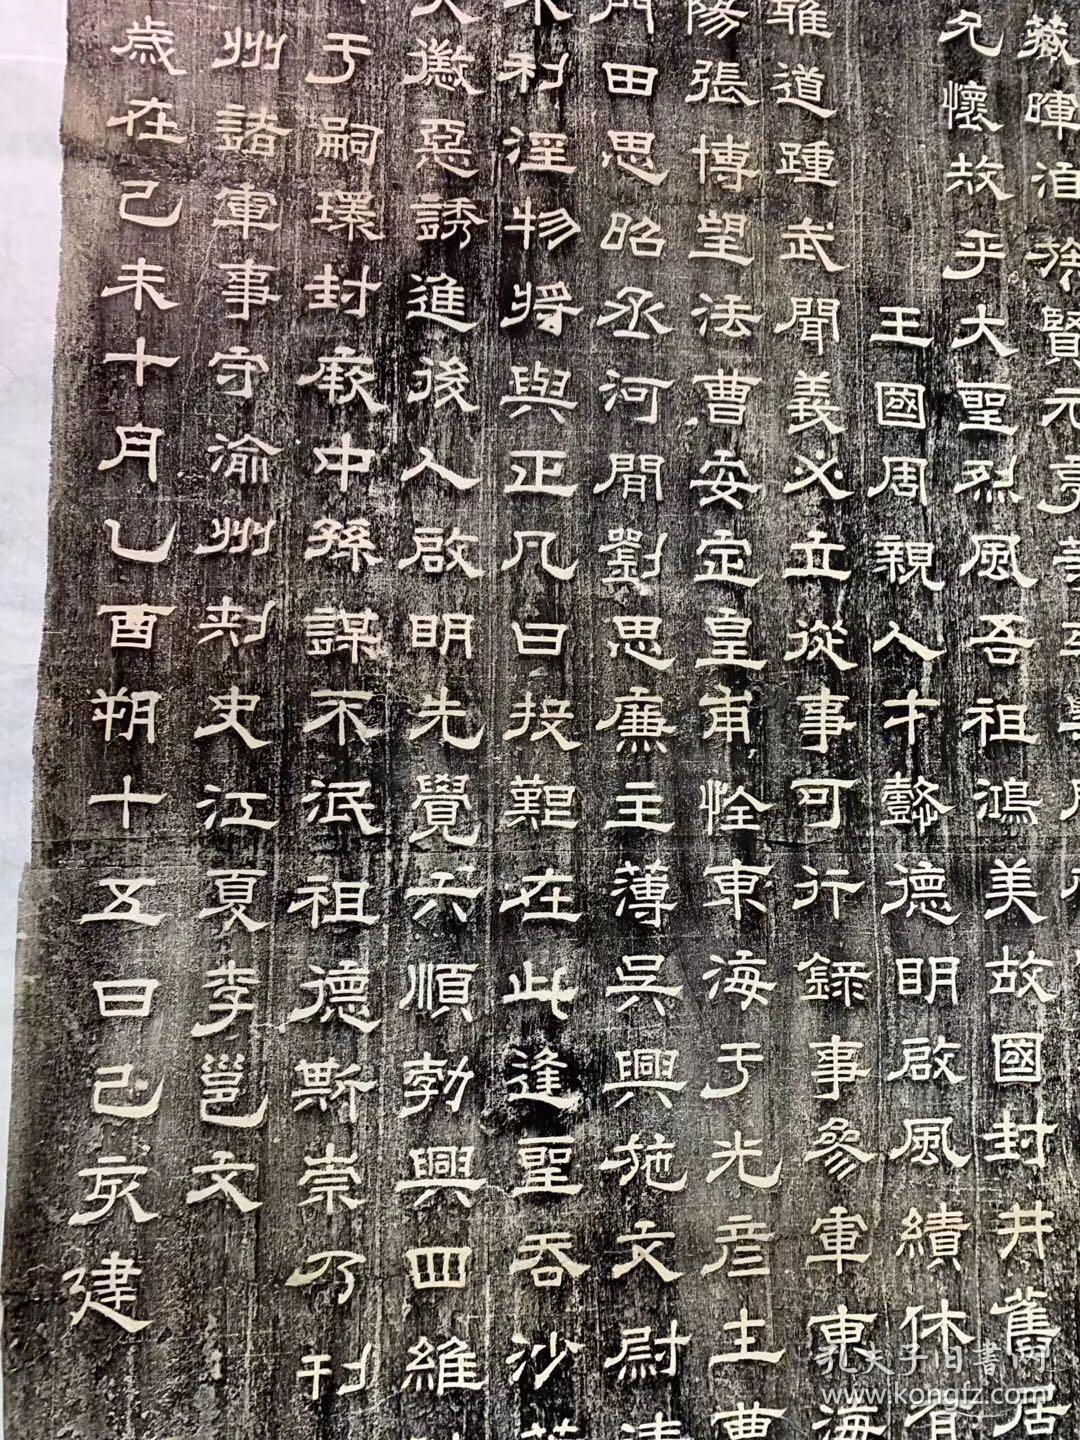 藏暉
賢元亨
允懷故乎大聖烈風吾祖鴻美故國封井舊居
王國周親人才懿德明啟風績休有
雅道踵武聞義必立從事可行錄事參軍東海
陽張博望法曹安定皇甫恮東海于光彦士曹
門田思昭丞河間劉思廉主薄吳興施文尉清
不利淫物將與正凡曰投艱在此逢聖吞沙
人徽惡誘進後人啟明先覺六順勃興四維
于嗣環封厥中孫謀不泯祖德斯崇乃刊
州諸軍事守渝州刺史江夏李邕文
歲在己未十月乙酉朔十五日己亥建
孔夫子旧書网
www.kongfz.com